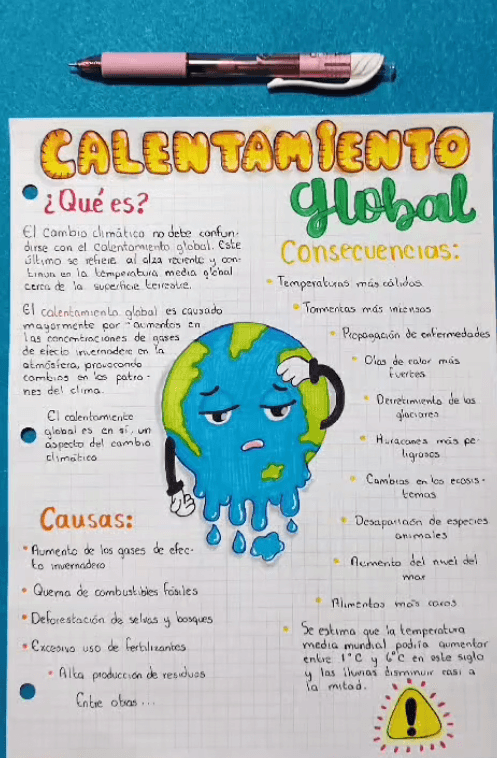 CALENTAMIENTO
Global
¿Qué es?
El cambio climático no debe confun-
dirse con el calentamiento global. Este
último se refiere al alza reciente y con-
tinua en la temperatura media global
cerca de la superficie terrestre.
El calentamiento global es causado
mayormente por aumentos en
las concentraciones de gases
de efecto invernadero en la
atmósfera, provocando
cambios en los patro-
nes del clima.
El calentamiento
global es en sí, un
aspecto del cambio
climático
Causas:
Aumento de los gases de efec-
to invernadero
Quema de combustibles fósiles
Deforestación de selvas y bosques
Excesivo uso de fertilizantes
Alta producción de residuos
Entre otras...
Consecuencias:
Temperaturas más cálidas
Tormentas más intensas
Propagación de enfermedades
Olas de calor más
fuertes
Derretimiento de los
glaciares
Huracanes más pe-
ligrosos
Cambios en los ecosis-
temas
Desaparición de especies
animales
Aumento del nivel del
mar
Alimentos más caros
Se estima que la temperatura
media mundial podría aumentar
entre 1°C y 6°C en este siglo
y las lluvias disminuir casi a
la mitad.
!